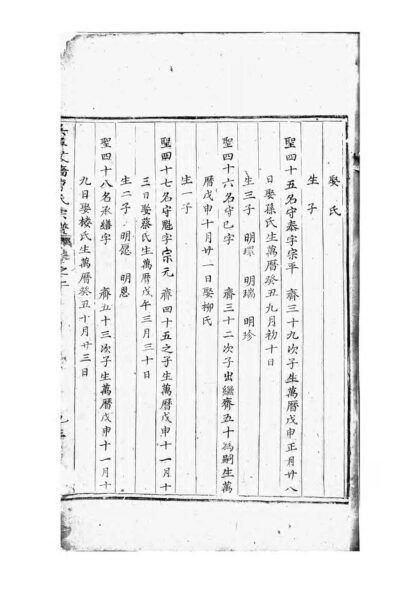 娶氏
生子
聖四十五名守泰字宗平 齊三十九次子生萬曆戊申正月廿八
日娶孫氏生萬曆癸丑九月初十日
生三子 明環 明瑞 明珍
聖四十六名守已字 齊三十二次子出繼齊五十為嗣生萬
曆戊申十月廿一日娶柳氏
生一子
聖四十七名守魁字宗元 齊四十五之子生萬曆戊申十一月十
三日娶蔡氏生萬曆戊午三月三十日
生二子 明愿 明恩
聖四十八名承繕字 齊五十三次子生萬曆戊申十一月十
九日娶樓氏生萬曆癸丑十月廿三日
氏宗譜